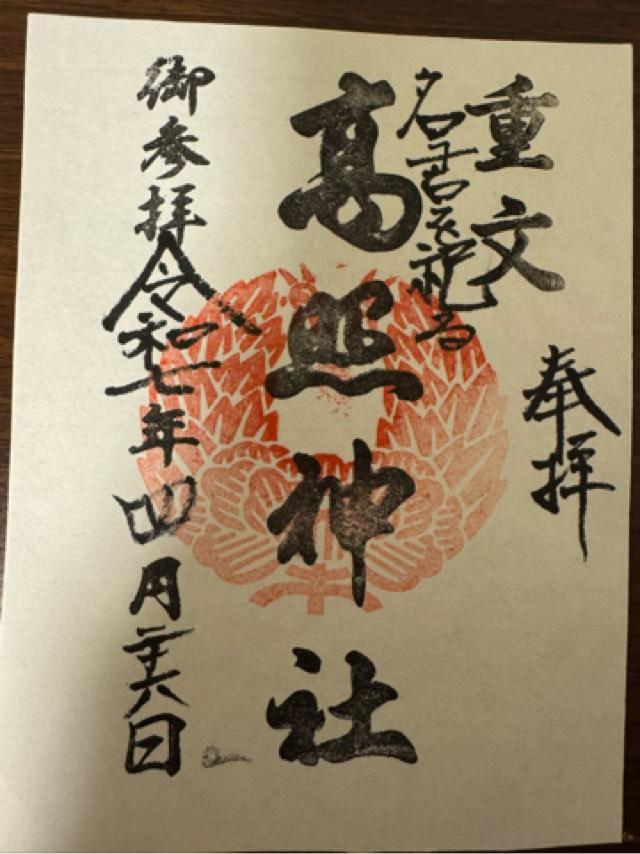 奉拝
重文
名君を祀る
高照神社
御参拝令和七年四月二十六日